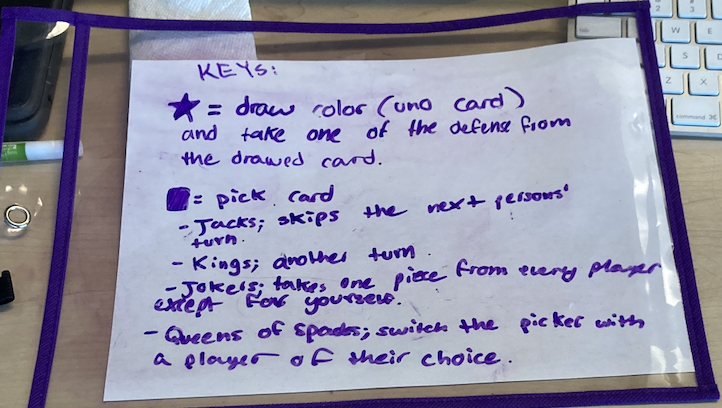 KEYS:
★ = draw color (uno card)
and take one of the defense from
the drawed card.
■ = pick card
- Jacks; skips the next persons'
turn.
- Kings; another turn.
- Jokers; takes one piece from every player
except for yourself.
- Queens of Spads; switch the picker with
a player of their choice.
W
E
S
Z
X
command ⌘